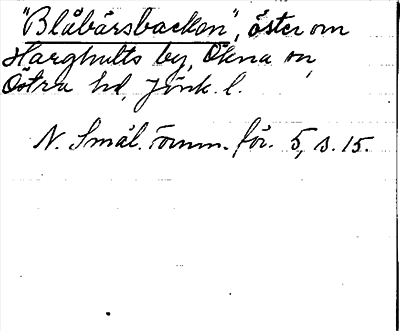 "Blåbärsbacken", öster om
Harghults by, Ökna sn,
Östra hd, Jönk. l.
N. Smål. fornm. för. 5, s. 15.